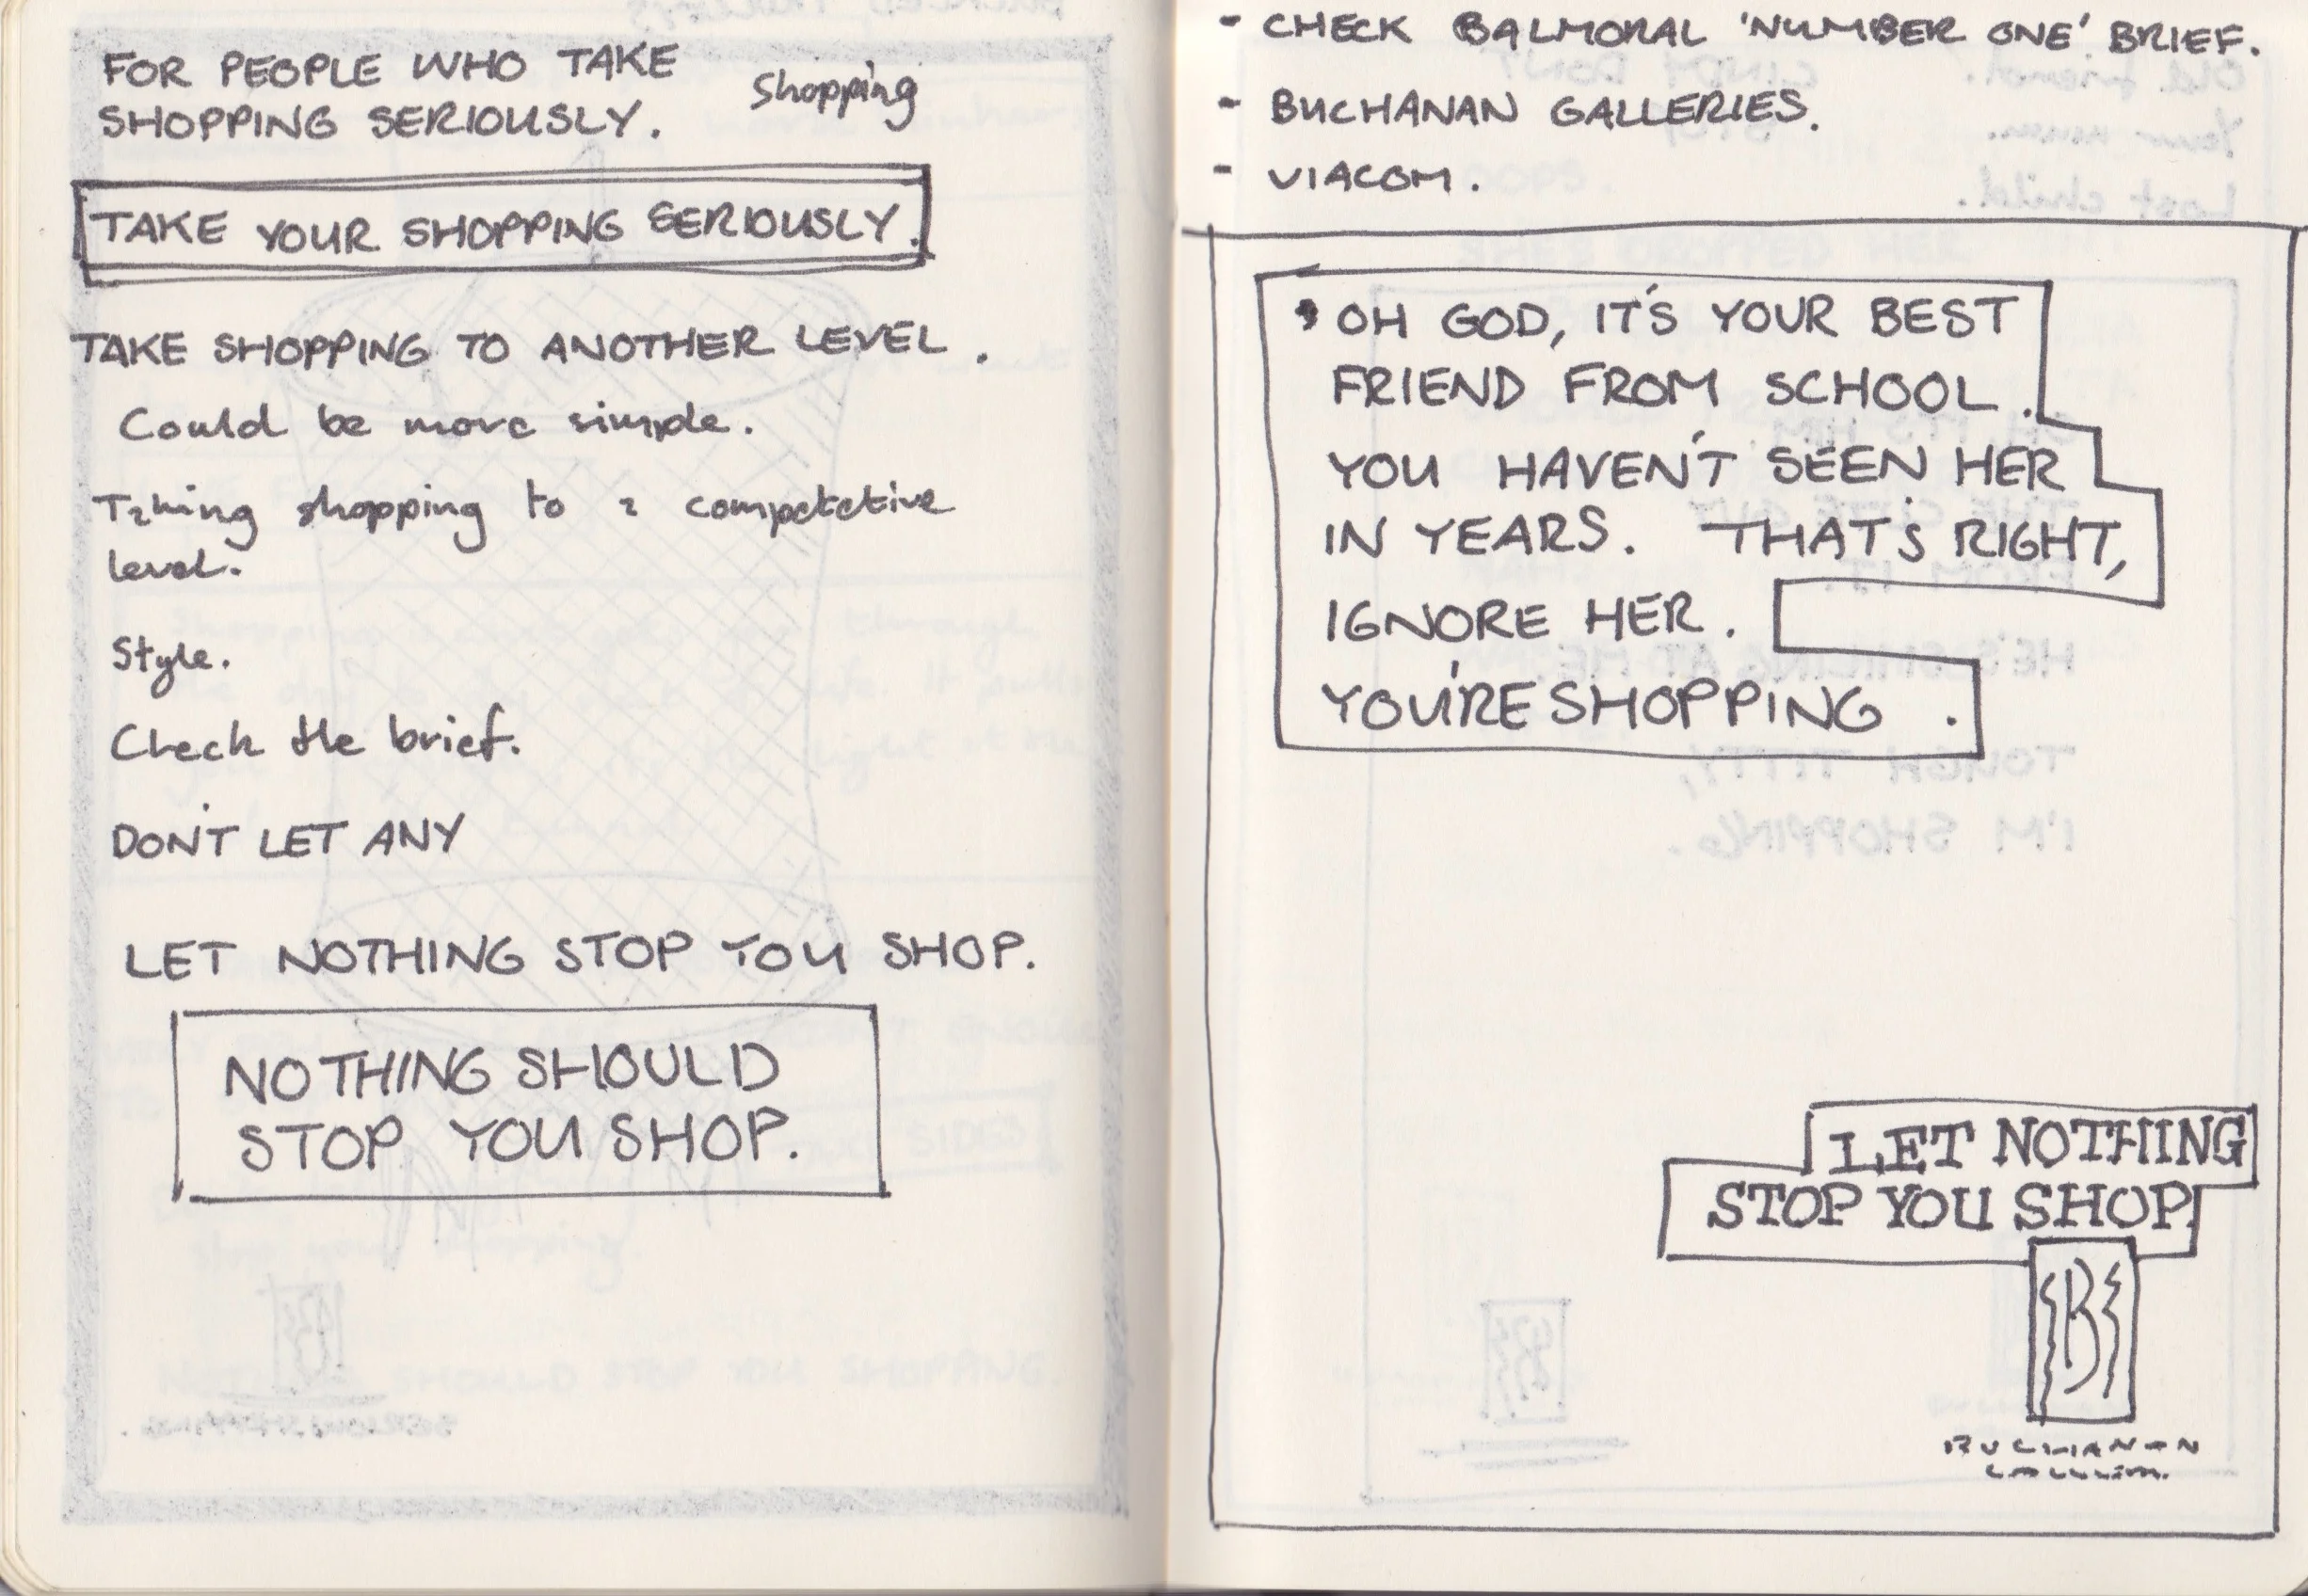 FOR PEOPLE WHO TAKE
SHOPPING SERIOUSLY.
Shopping
TAKE YOUR SHOPPING SERIOUSLY.
TAKE SHOPPING TO ANOTHER LEVEL.
Could be more simple.
Taking shopping to a competetive
level.
Style.
Check the brief.
DON'T LET ANY
LET NOTHING STOP YOU SHOP.
NOTHING SHOULD
STOP YOU SHOP.
- CHECK BALMORAL 'NUMBER ONE' BRIEF.
- BUCHANAN GALLERIES.
- VIACOM.
'OH GOD, IT'S YOUR BEST
FRIEND FROM SCHOOL.
YOU HAVEN'T SEEN HER
IN YEARS. THAT'S RIGHT,
IGNORE HER.
YOU'RE SHOPPING.
LET NOTHING
STOP YOU SHOP.
B
BUCHANAN